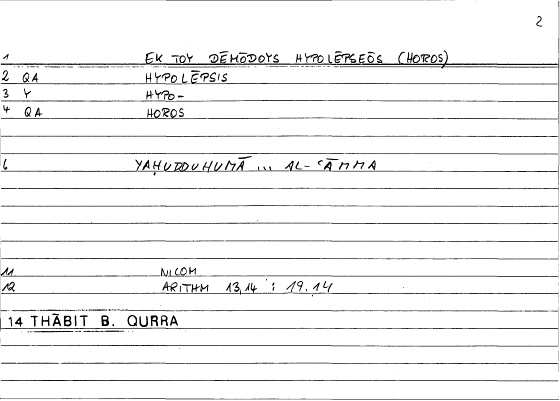 2
1 EK TOY DĒMŌDOYS HYPOLĒPSEŌS (HOROS)
2 QA HYPOLĒPSIS
3 Y HYPO-
4 QA HOROS
6 YAḤUDDUHUMĀ ... AL-ʿĀMMA
11 NICOM
12 ARITHM 13,14 : 19.14
14 THĀBIT B. QURRA